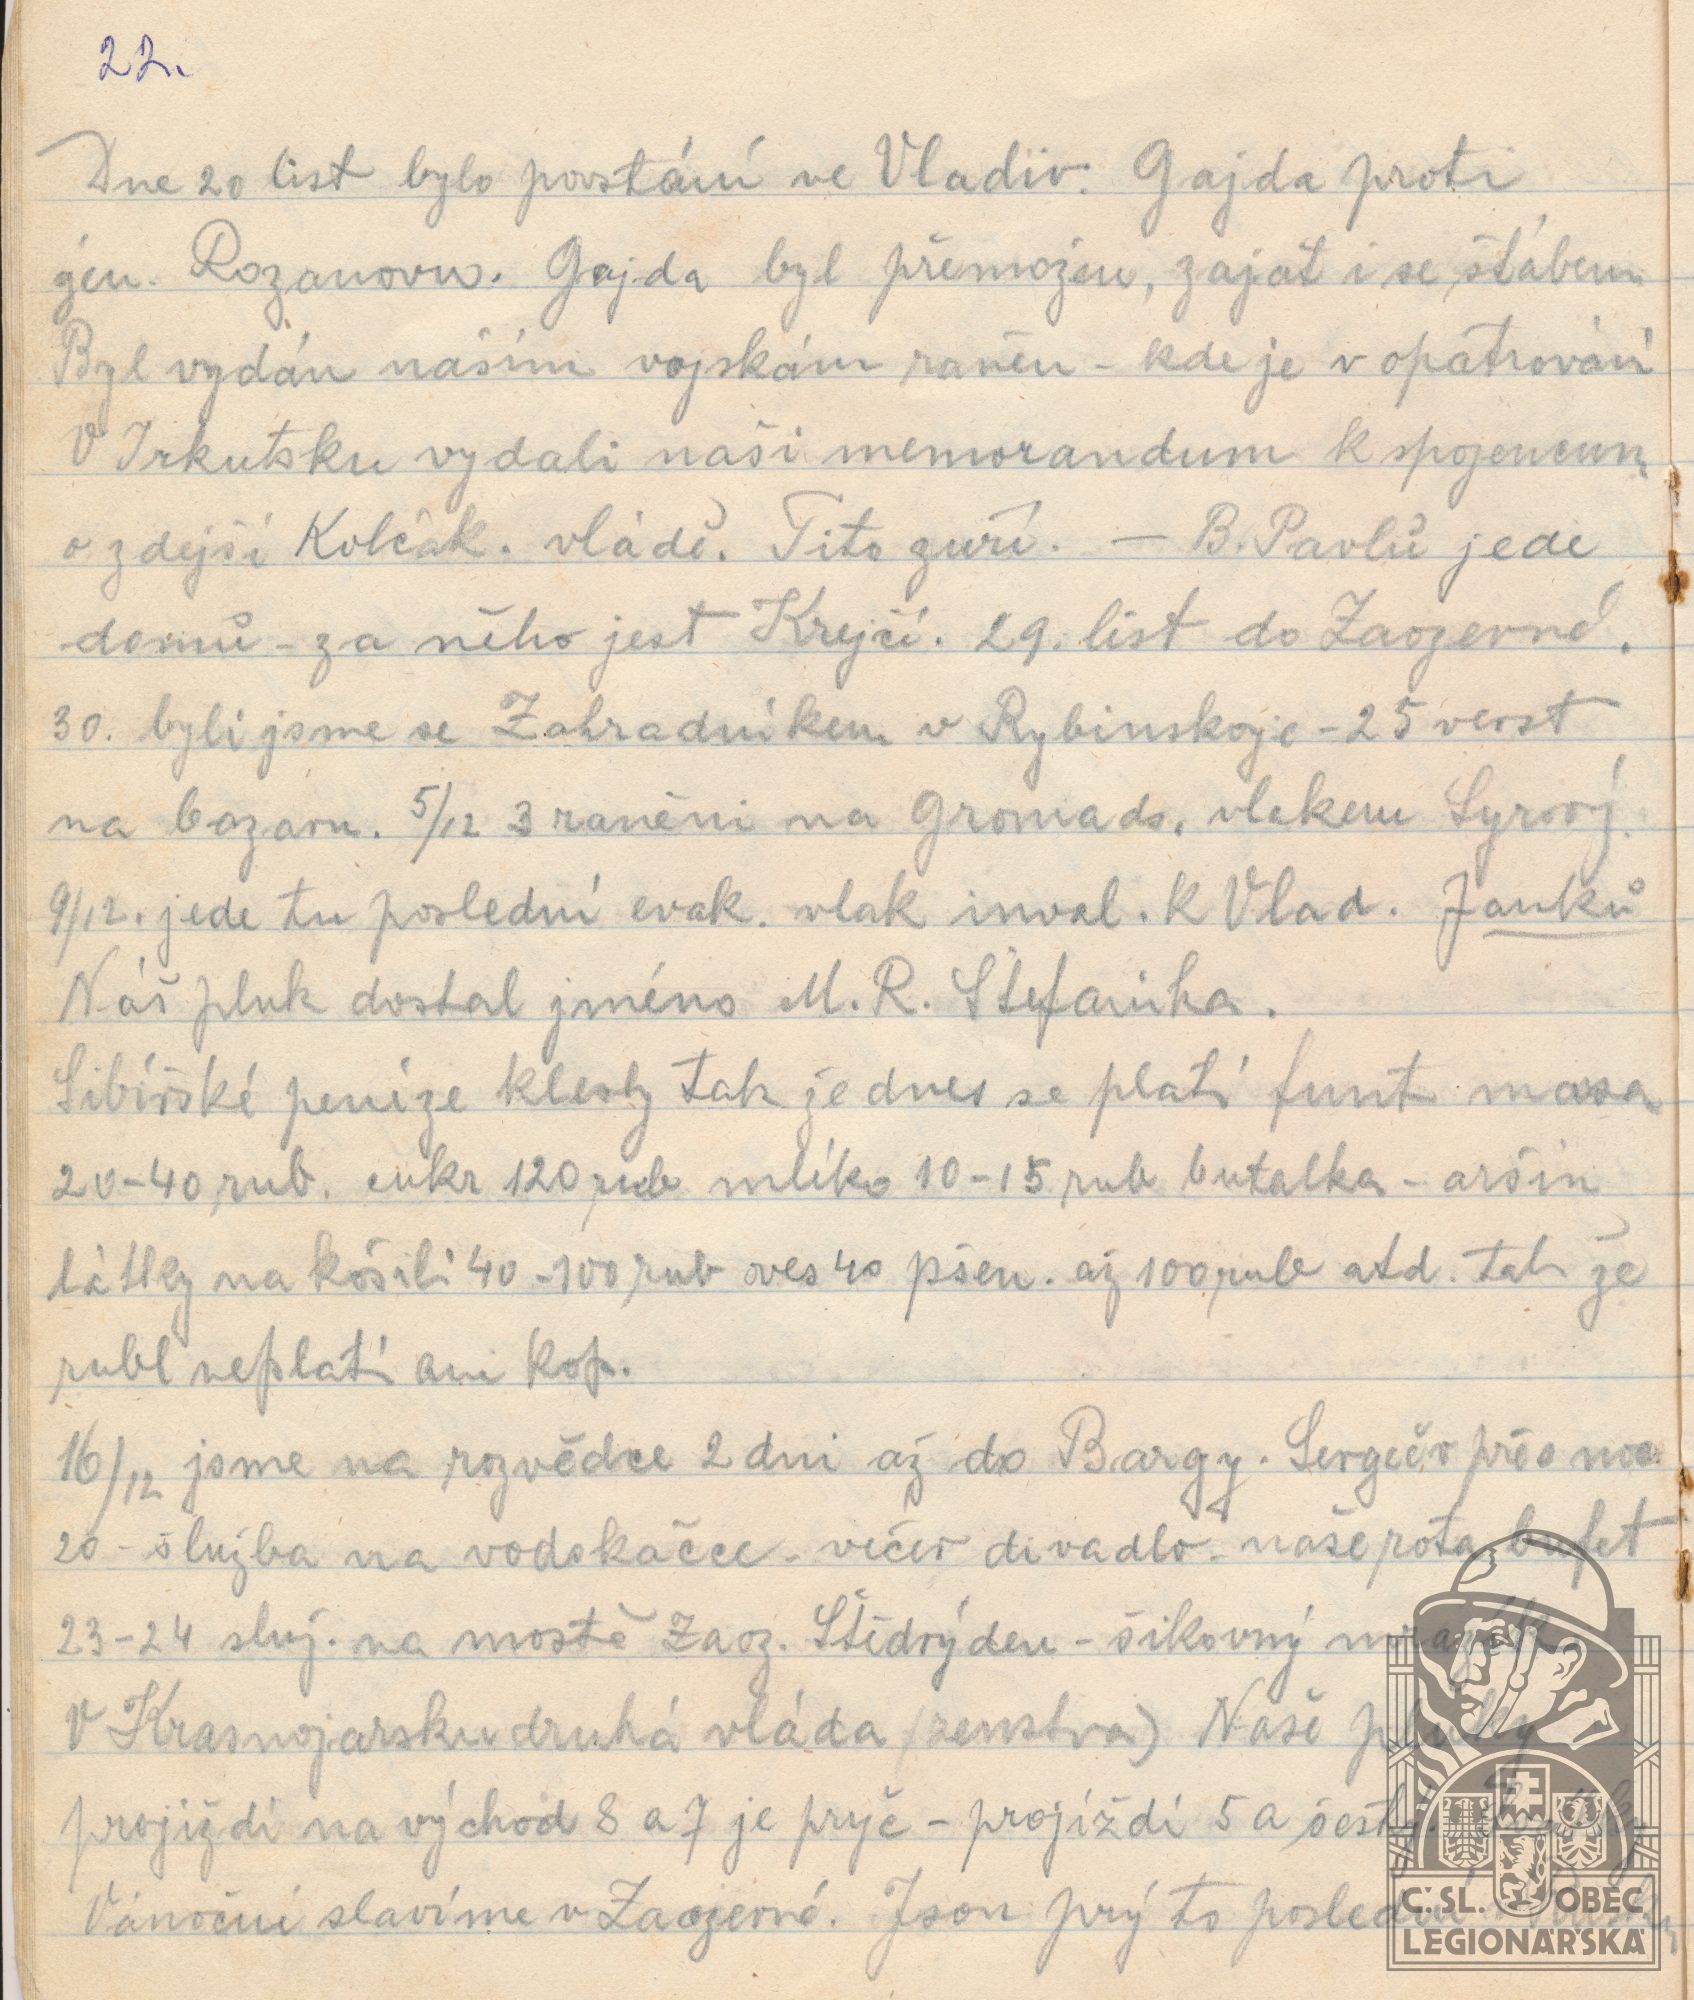 22.
Dne 20 list bylo povstání ve Vladiv. Gajda proti
gen. Rozanovu. Gajda byl přemožen, zajat i se štábem
Byl vydán našim vojskám raněn - kde je v opatrování
V Irkutsku vydali naši memorandum k spojencum
o zdejší Kolčak. vládě. Tito zuří. — B. Pavlů jede
domů - za něho jest Krejčí. 29. list do Zaozerné.
30. byli jsme se Zahradníkem v Rybinskoje - 25 verst
na bazaru. 5/12 3 raněni na Gromads. vlakem Syrový
9/12. jede tu poslední evak. vlak inval. k Vlad. Janků
Náš pluk dostal jméno M. R. Štefanika.
Sibiřské peníze klesly tak že dnes se platí funt masa
20-40 rub. cukr 120 rub mlíko 10-15 rub butalka - aršin
látky na košili 40-100 rub oves 40 pšen. až 100 rub atd. tak že
rubl neplatí ani kop.
16/12 jsme na rozvědce 2 dni až do Bargy. přes noc
20 - služba na vodokačce - večer divadlo - naše rota bufet
23-24 služ. na mostě Zaoz. Štědrýden - šikovný
V Krasnojarsku druhá vláda (zemstva) Naše pluky
projíždí na východ 8 a 7 je pryč - projíždí 5 a šestý.
Vánoční slavíme v Zaozerné. Json prý to poslední v Rusku
Č. SL. OBEC
LEGIONÁŘSKÁ